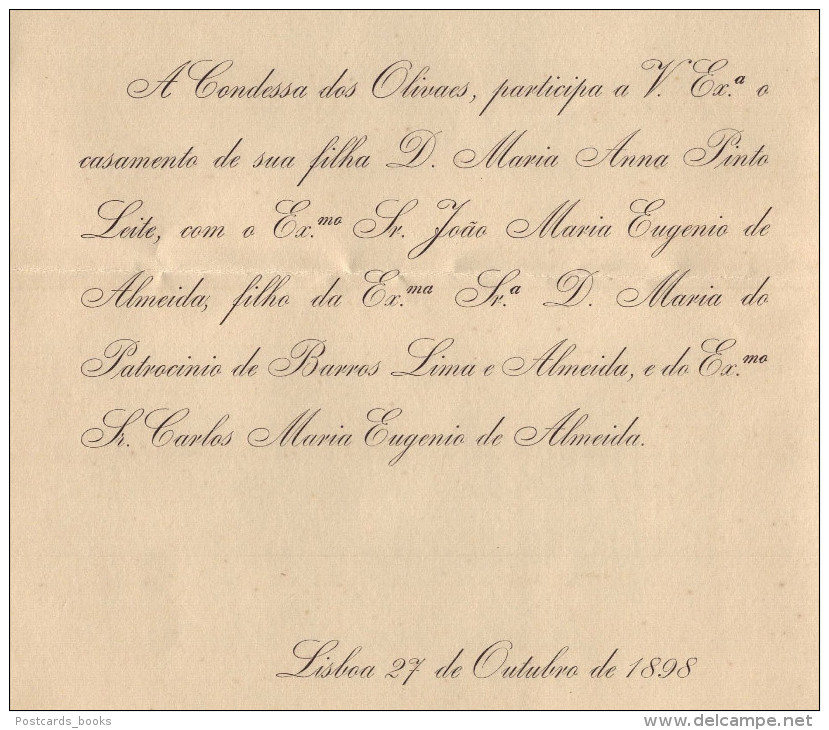 A Condessa dos Olivaes, participa a V. Ex.ª o
casamento de sua filha D. Maria Anna Pinto
Leite, com o Ex.mo Sr. João Maria Eugenio de
Almeida, filho da Ex.ma Sr.ª D. Maria do
Patrocinio de Barros Lima e Almeida, e do Ex.mo
Sr. Carlos Maria Eugenio de Almeida.
Lisboa 27 de Outubro de 1898
Postcards_books
delcampe.net